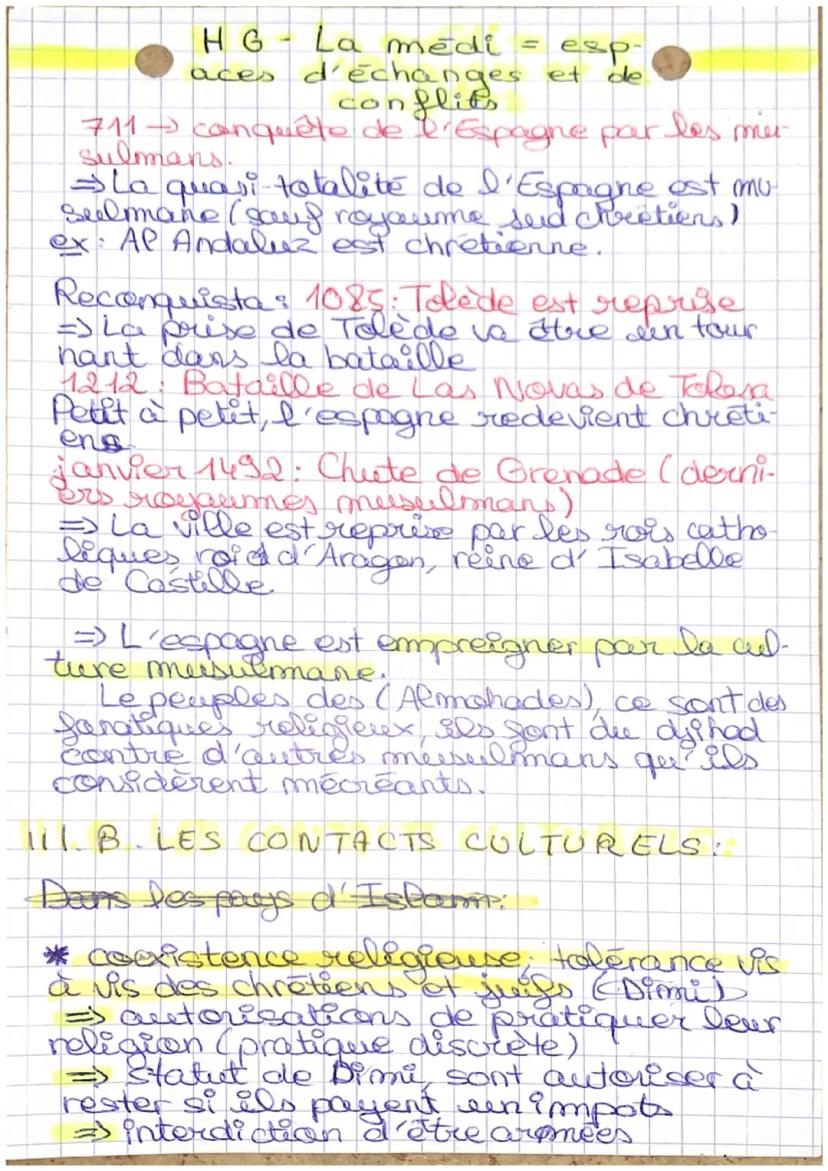 HG - La médi = esp-
aces d'échanges et de
conflits
711 → conquête de l'Espagne par les mu-
sulmans.
⇒ La quasi-totalité de l'Espagne est mu-
sulmane (sauf royaume sud chrétiens)
ex : Al Andaluz est chrétienne.
Reconquista : 1085 : Tolède est reprise
⇒ La prise de Tolède va être un tour
nant dans la bataille
1212 : Bataille de Las Novas de Tolosa
Petit à petit, l'espagne redevient chréti-
enne
janvier 1492 : Chute de Grenade (derni-
ers royaumes musulmans)
⇒ La ville est reprise par les rois catho-
liques, roi d'Aragon, reine d'Isabelle
de Castille
⇒ L'espagne est empreigner par la cul-
ture musulmane.
Le peuples des (Almohades), ce sont des
fanatiques religieux, ils font du djihad
contre d'autres musulmans qu'ils
considèrent mécréants.
III. B. LES CONTACTS CULTURELS :
Dans les pays d'Islam :
* coexistence religieuse, tolérance vis
à vis des chrétiens et juifs (Dimi)
⇒ autorisations de pratiquer leur
religion (pratique discrète)
⇒ Statut de Dimi, sont autoriser à
rester si ils payent un impots
⇒ interdiction d'être armées